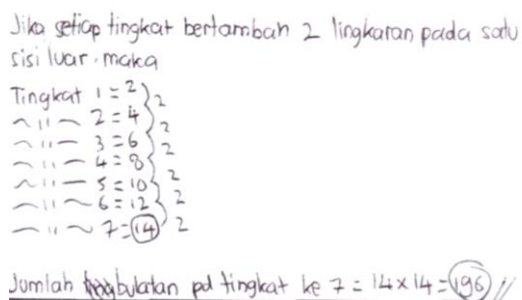 Jika setiap tingkat bertambah 2 lingkaran pada satu
sisi luar. maka
Tingkat 1 = 2
~ 11 ~ 2 = 4
~ 11 — 3 = 6
~ 11 — 4 = 8
~ 11 — 5 = 10
— 11 ~ 6 = 12
— 11 ~ 7 = 14
2
2
2
2
2
2
Jumlah bulatan pd tingkat ke 7 = 14 x 14 = 196 //